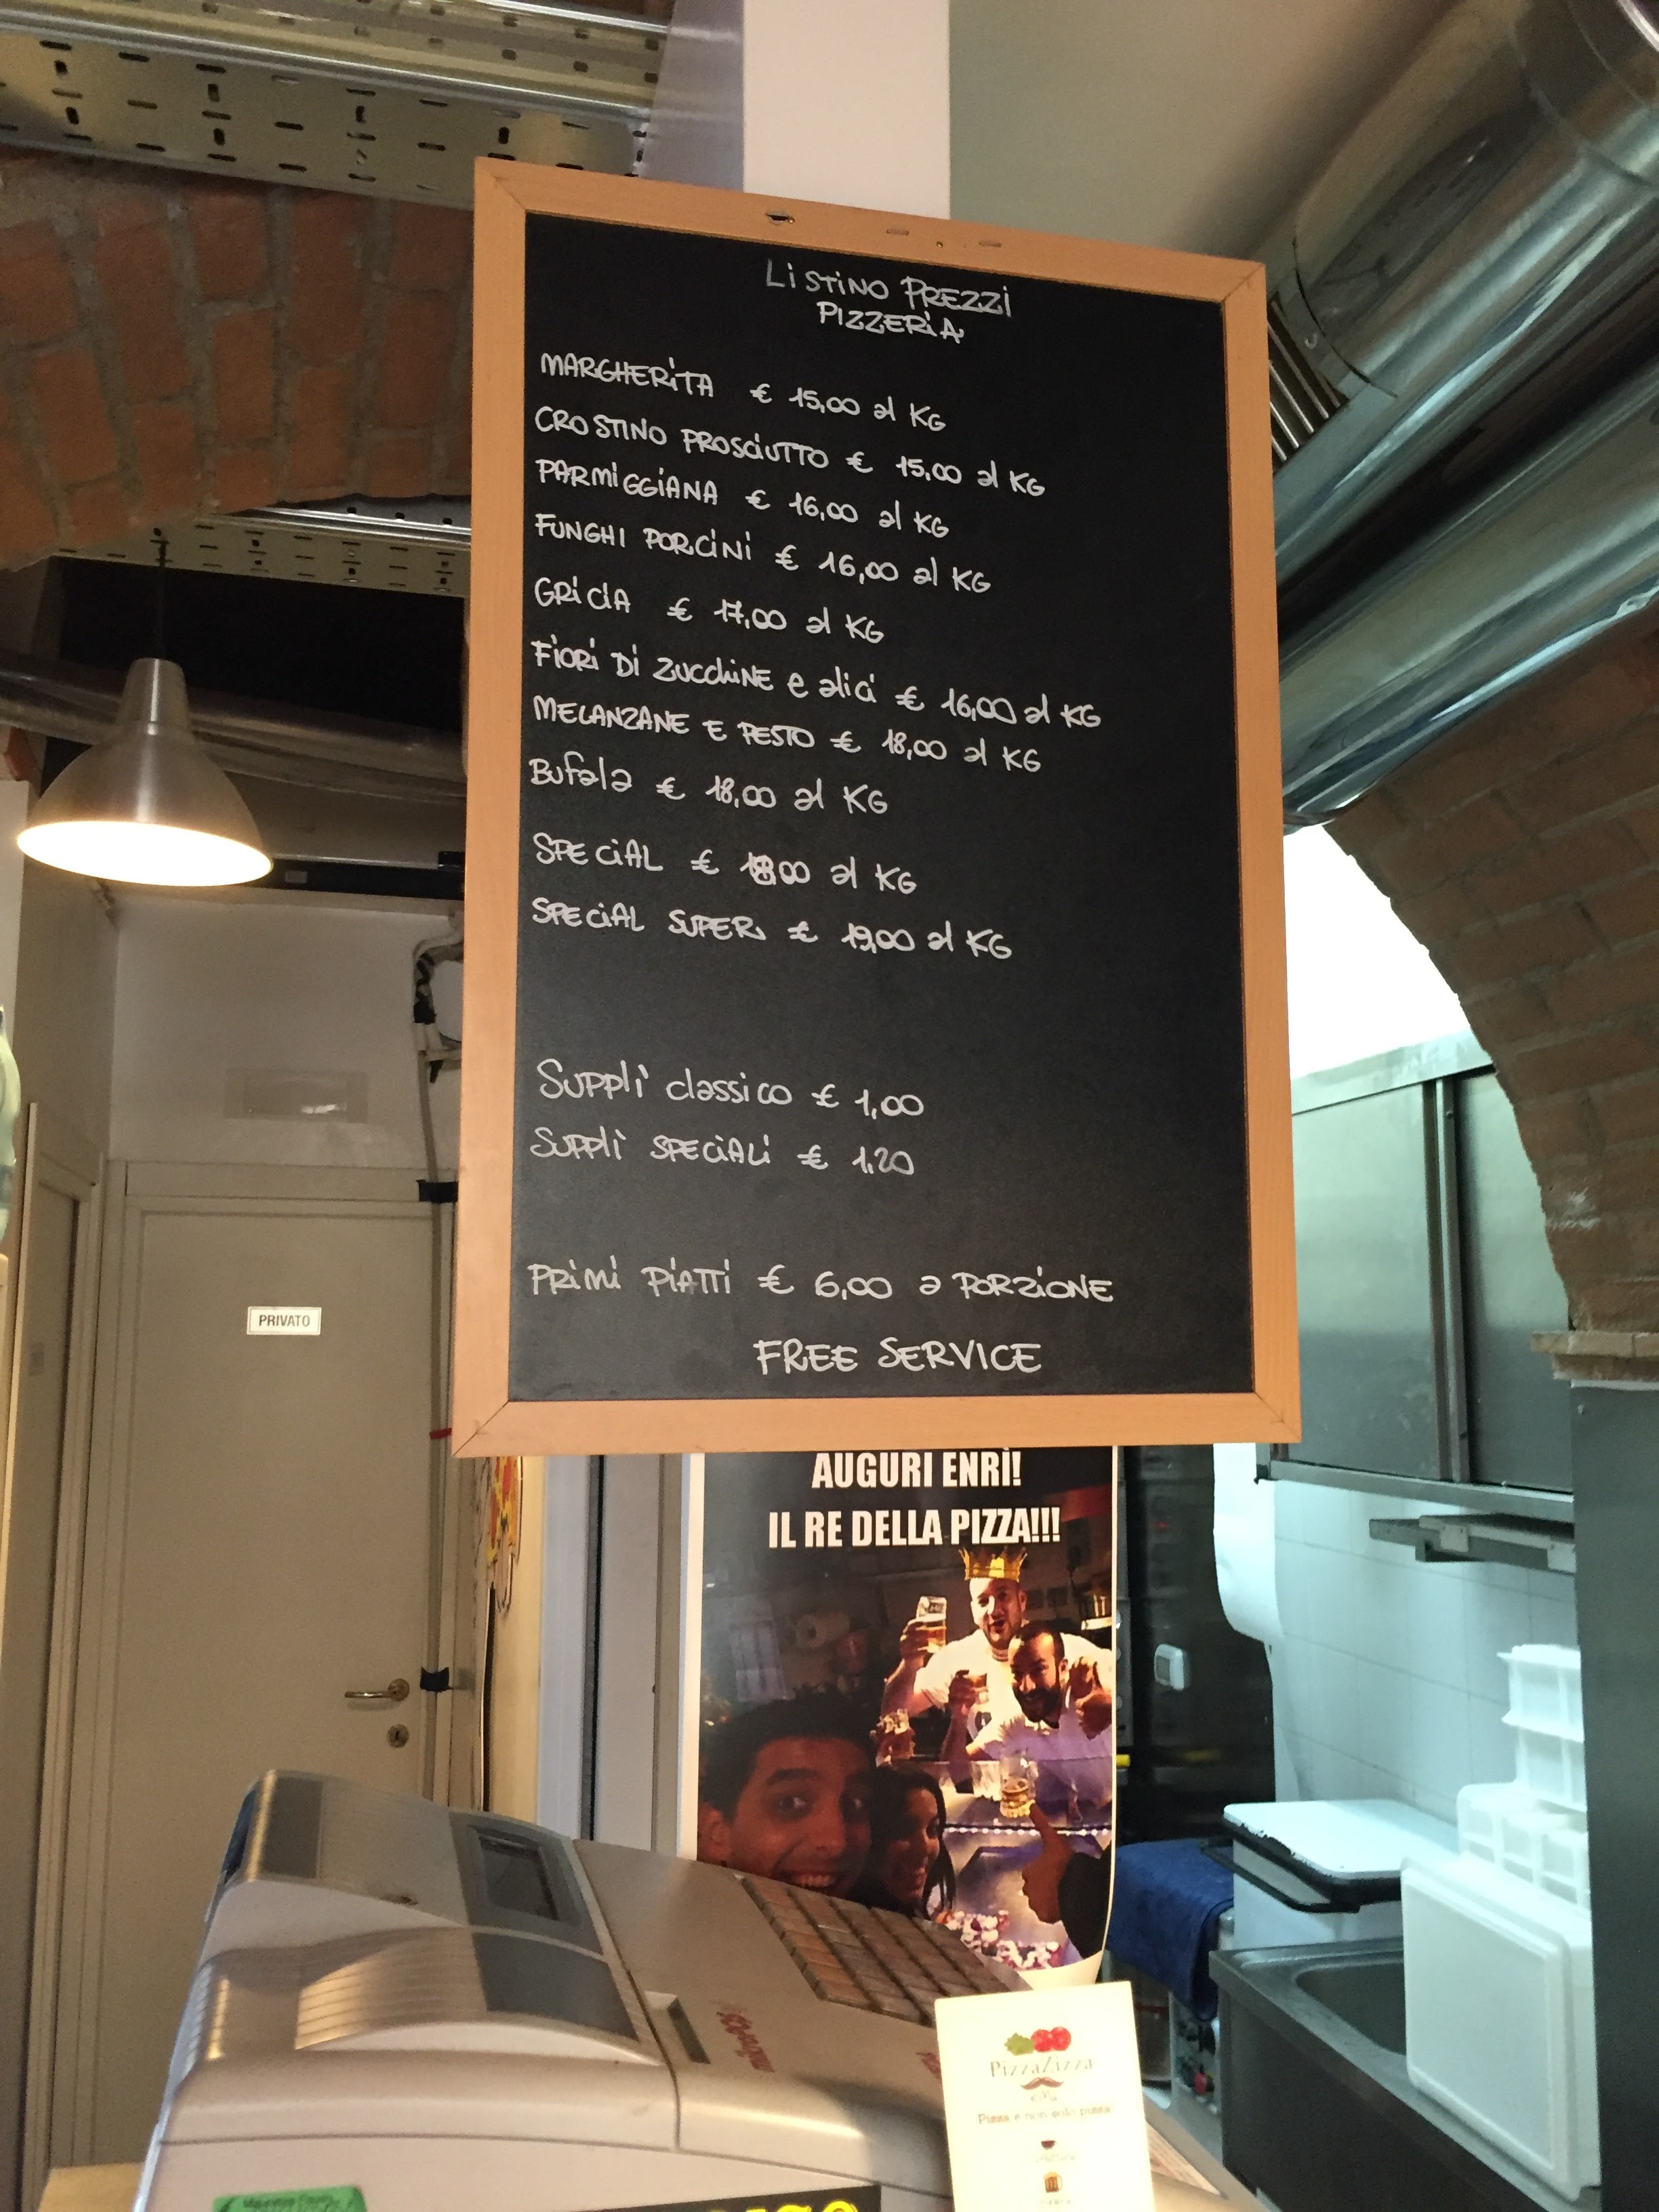 LISTINO PREZZI
PIZZERIA
MARGHERITA € 15,00 al KG
CROSTINO PROSCIUTTO € 15,00 al KG
PARMIGGIANA € 16,00 al KG
FUNGHI PORCINI € 16,00 al KG
GRICIA € 17,00 al KG
FIORI DI ZUCCHINE e alici € 16,00 al KG
MELANZANE E PESTO € 18,00 al KG
Bufala € 18,00 al KG
SPECIAL € 1800 al KG
SPECIAL SUPER € 19,00 al KG
Supplì classico € 1,00
Supplì SPECIALI € 1,20
PRIMI PIATTI € 6,00 a PORZIONE
FREE SERVICE
PRIVATO
AUGURI ENRÌ!
IL RE DELLA PIZZA!!!
PizzaZizza
Pizza e non solo pizza